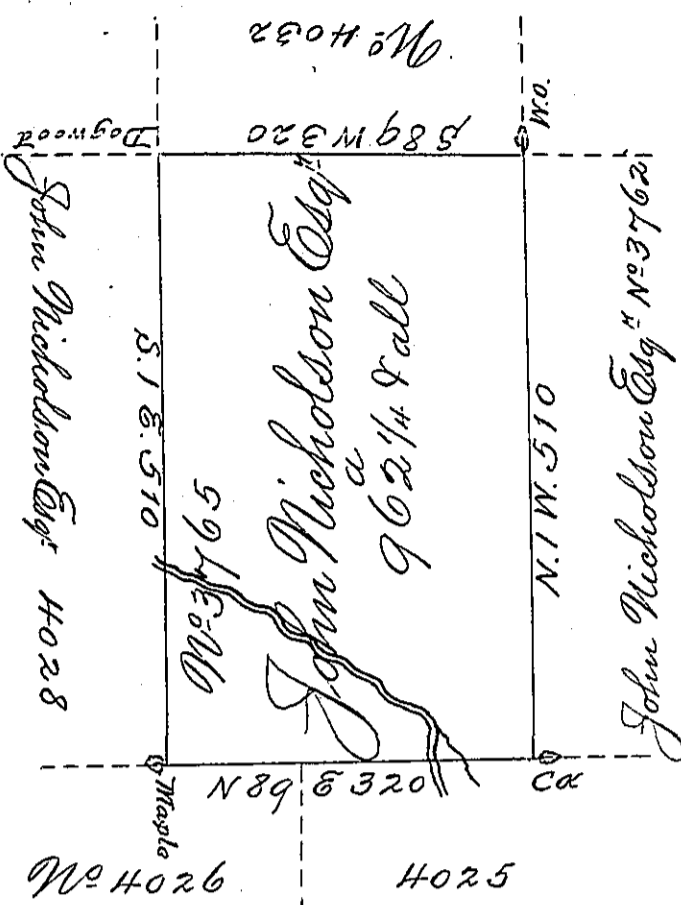 Nº 4032
Dogwood
S 89 W 320
W.O.
John Nicholson Esqʳ 4028
S. 1 E. 510
Nº 3765
John Nicholson Esqʳ
a
962 1/4 & all
N. 1 W. 510
John Nicholson Esqʳ Nº 3762
Maple
N 89 E 320
Nº 4026
4025